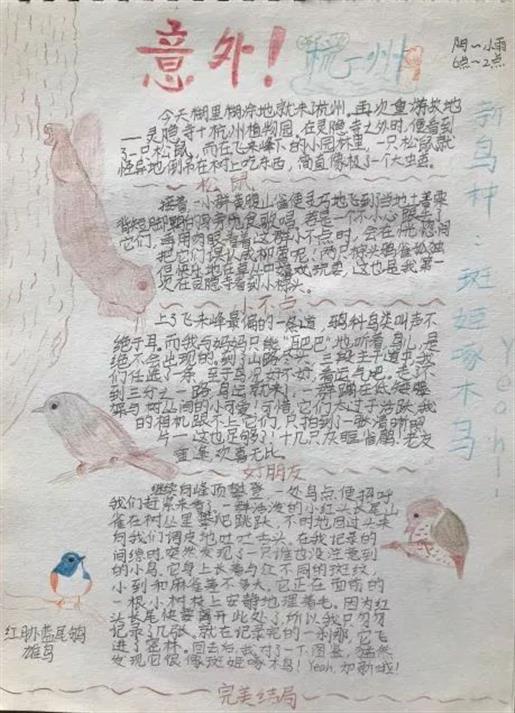 意外！杭州
阴～小雨
6点～2点
今天糊里糊涂地就来了杭州。再次重游故地
——灵隐寺+杭州植物园，在灵隐寺之外时，便看到
了一只松鼠，而在飞来峰下的小园林里，一只松鼠就
怪异地倒吊在树上吃东西，简直像极了一个大虫茧。
松鼠
接着一小群黄腹山雀便灵巧地飞到当地土著栗
背短脚鹎的阔旁觅食歌唱，若是一个不小心跟丢了
它们，再用肉眼看着这群小不点时，会在恍惚间
把它们误认成柳莺呢！两只棕头鸦雀孤独
但快生地在草丛中嬉戏玩耍，这也是我第一
次在灵隐寺看到小棕头。
小不点
上了飞来峰最偏的一条道，鸦科鸟类叫声不
绝于耳。而我与妈妈只能“眼巴巴”地听着，鸟儿，是
绝不会出现的。到了山路尽头，三段主干道中，我
们任选了一条，至于鸟况好不好，看运气吧。走了不
到三分之一路，鸟运就来了，一群
与树丛间的小可爱！可惜，它们太过于活跃，我
的相机跟不上它们，只拍到了一张清晰照
片——这也足够了！十几只灰眶雀鹛！老友
重逢，欢喜无比。
好朋友
继续向峰顶攀登，一处鸟点便招呼
我们赶紧来看！一群活泼的小红头长尾山
雀在树丛里攀爬跳跃，不时地回过头来
向我们调皮地吐吐舌头。在我记录的
间隙时，突然发现了一只谁也没注意到
的小鸟，它身上长着与红不同的斑纹，
小到和麻雀差不多大，它正在面前的
一根小树枝上安静地理着毛。因为红
头长尾快要离开此处了，所以我只匆匆
记录了几张，就在记录完的一刹那，它飞
进了密林。回去后，我对了一下图鉴，猛然
发现它很像斑姬啄木鸟！Yeah，加新啦！
完美结局
新鸟种：斑姬啄木鸟
Yeah！
红胁蓝尾鸲
雄鸟